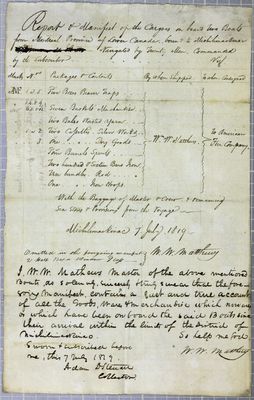 Report & Manifest of the Cargoes on board two Boats
from Montreal Province of Lower Canada, bound to Michilimackinac
navigated by Twenty Men Commanded
by the subscriber Viz
Marks Nos. Packages & Contents By whom Shipped To whom Consigned
Two Boxes Beaver Traps
Seven Baskets
Two Bales Worsted Yarn
1 - 2 Two Cassettes Silver Works
3 One Dry Goods Wm. W. Mathews To American Fur Company
Four Barrels Spirits
Two hundred & Sixteen Bars Iron
Two hundred Rod
One Hoops
With the Baggage of Master & Crew & remaining
Sea Stores & Provisions from the Voyage
Michilimackinac 7 July 1819
omitted in the foregoing manifest W. W. Matthews
I, W. W. Mathews Master of the above mentioned
Boats do solemnly, sincerely & truly swear that the fore-
going Manifest contains a just and true account
of all the Goods, Wares & Merchandise which now are
or which have been on board the said Boats since
their arrival within the limits of the district of
Michilimackinac So help me God
Sworn & subscribed before
me, this 7 July 1819 W. W. Matthews
Adam D. Steuart
Collector